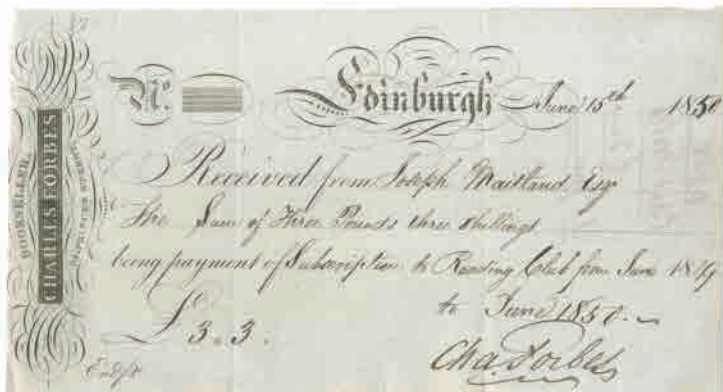 BOOKSELLER
CHARLES FORBES
No. Edinburgh June 15th 1850
Received from Joseph Maitland Esqr
The Sum of Three Pounds three shillings
being payment of Subscription to Reading Club from June 1849
to June 1850.
£3.3.
Chas Forbes